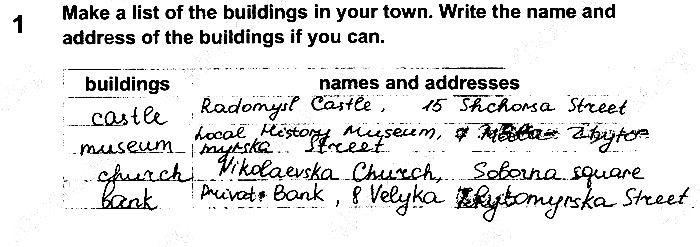 1 Make a list of the buildings in your town. Write the name and
address of the buildings if you can.
buildings names and addresses
castle Radomysl Castle, 15 Shchorsa Street
museum Local History Museum, Zhytomyrska Street
church Nikolaevska Church, Soborna square
bank Privat Bank, 8 Velyka Zhytomyrska Street